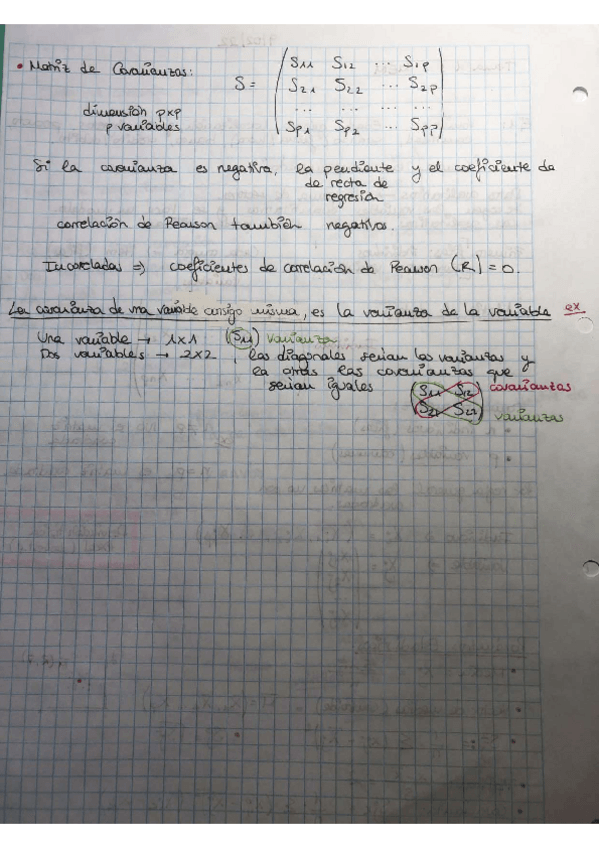 • Matriz de Covarianzas:
S = ( S11 S12 ... S1p
S21 S22 ... S2p
... ... ... ...
Sp1 Sp2 ... Spp )
dimensión pxp
p variables
Si la covarianza es negativa, la pendiente y el coeficiente de
de recta de
regresión
correlación de Pearson también negativos.
Incorreladas ⇒ coeficientes de correlación de Pearson (R) = 0.
La covarianza de una variable consigo misma, es la varianza de la variable ex
Una variable → 1x1 (S11) varianza
Dos variables → 2x2, las diagonales serían las varianzas y
la otras las covarianzas que
serían iguales
(S11 S12 covarianzas
S21 S22) varianzas